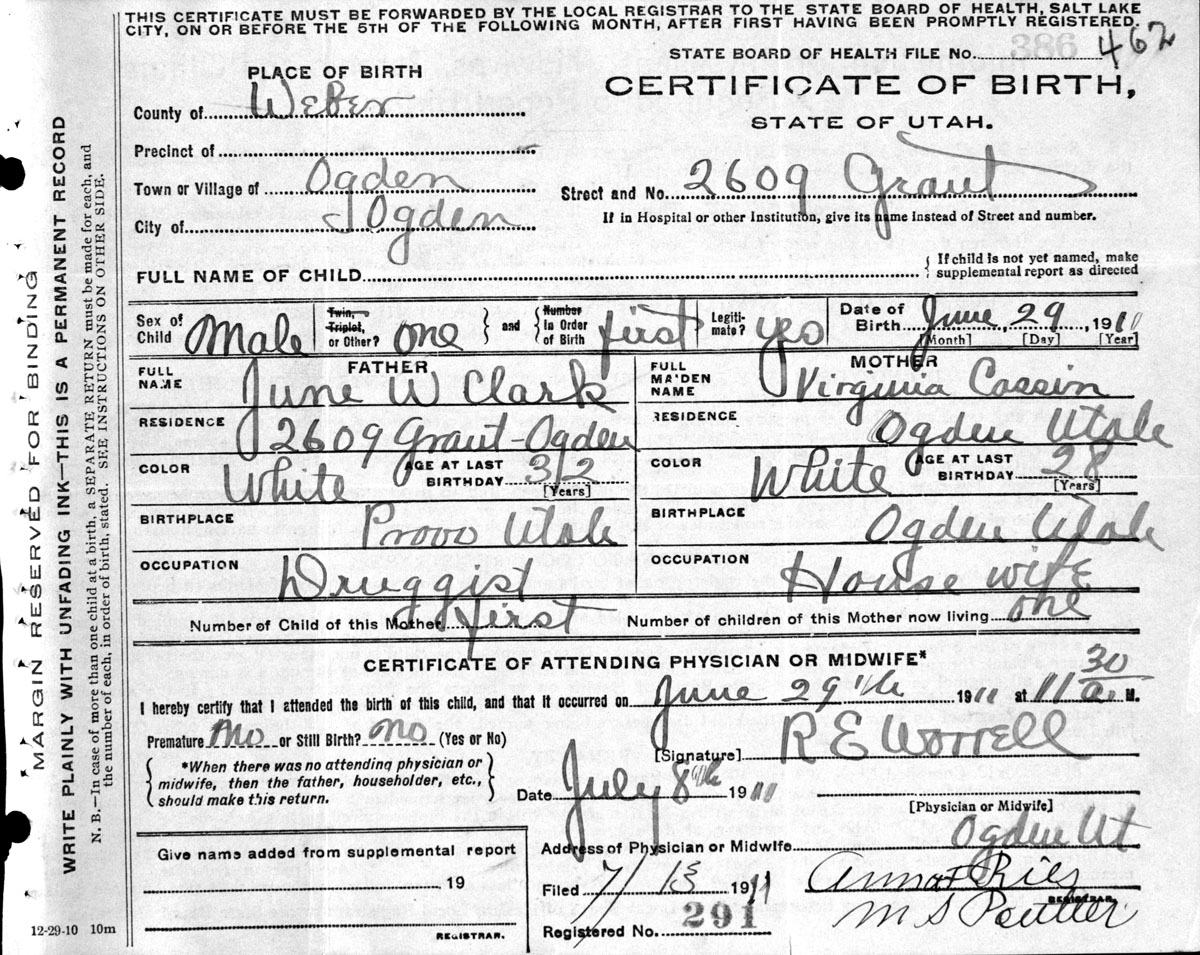 THIS CERTIFICATE MUST BE FORWARDED BY THE LOCAL REGISTRAR TO THE STATE BOARD OF HEALTH, SALT LAKE
CITY, ON OR BEFORE THE 5TH OF THE FOLLOWING MONTH, AFTER FIRST HAVING BEEN PROMPTLY REGISTERED.
386
STATE BOARD OF HEALTH FILE No. 462
PLACE OF BIRTH
CERTIFICATE OF BIRTH,
STATE OF UTAH.
County of Weber
Precinct of
Town or Village of Ogden Street and No. 2609 Grant
City of Ogden If in Hospital or other Institution, give its name instead of Street and number.
FULL NAME OF CHILD { If child is not yet named, make
supplemental report as directed
Sex of Child Male Twin, Triplet, or Other? one } and { Number in Order of Birth first Legiti-mate? yes Date of Birth June 29, 1911
[Month] [Day] [Year]
FATHER MOTHER
FULL NAME June W Clark FULL MAIDEN NAME Virginia Cassin
RESIDENCE 2609 Grant-Ogden RESIDENCE Ogden Utah
COLOR White AGE AT LAST BIRTHDAY 32 [Years] COLOR White AGE AT LAST BIRTHDAY 28 [Years]
BIRTHPLACE Provo Utah BIRTHPLACE Ogden Utah
OCCUPATION Druggist OCCUPATION House wife
Number of Child of this Mother first Number of children of this Mother now living one
CERTIFICATE OF ATTENDING PHYSICIAN OR MIDWIFE*
I hereby certify that I attended the birth of this child, and that it occurred on June 29th 1911 at 11 30 a. M.
Premature no or Still Birth? no (Yes or No)
[Signature] R E Worrell
{ *When there was no attending physician or
midwife, then the father, householder, etc.,
should make this return.
Date July 8th 1911
[Physician or Midwife]
Address of Physician or Midwife Ogden Ut
Give name added from supplemental report
19
REGISTRAR.
Filed 7/13 1911 Anna F Ries
REGISTRAR.
Registered No. 291 M S
12-29-10 10m
MARGIN RESERVED FOR BINDING
WRITE PLAINLY WITH UNFADING INK—THIS IS A PERMANENT RECORD
N. B.—In case of more than one child at a birth, a SEPARATE RETURN must be made for each, and
the number of each, in order of birth, stated. SEE INSTRUCTIONS ON OTHER SIDE.